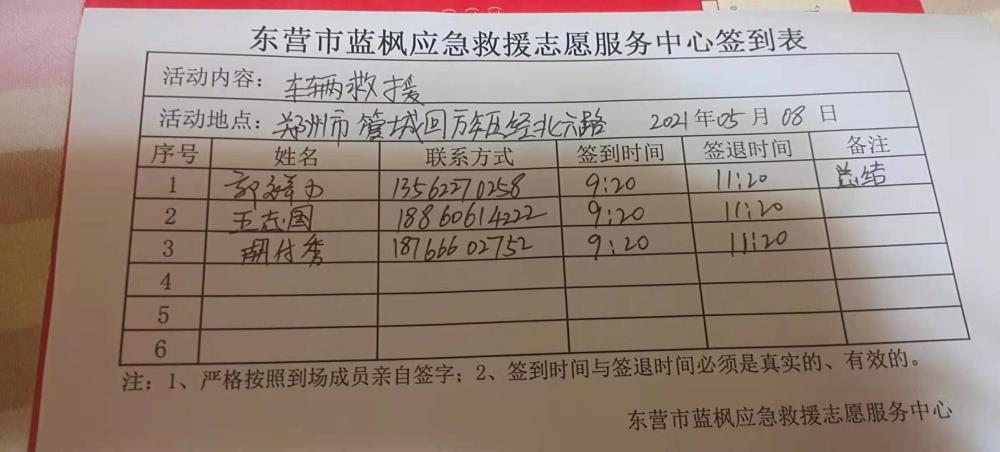 东营市蓝枫应急救援志愿服务中心签到表
活动内容: 车辆救援
活动地点: 郑州市管城回族区经北六路 2021年05月08日
序号 姓名 联系方式 签到时间 签退时间 备注
1 13562270258 9:20 11:20 总结
2 王志国 18860614222 9:20 11:20
3 18766602752 9:20 11:20
4
5
6
注:1、严格按照到场成员亲自签字;2、签到时间与签退时间必须是真实的、有效的。
东营市蓝枫应急救援志愿服务中心